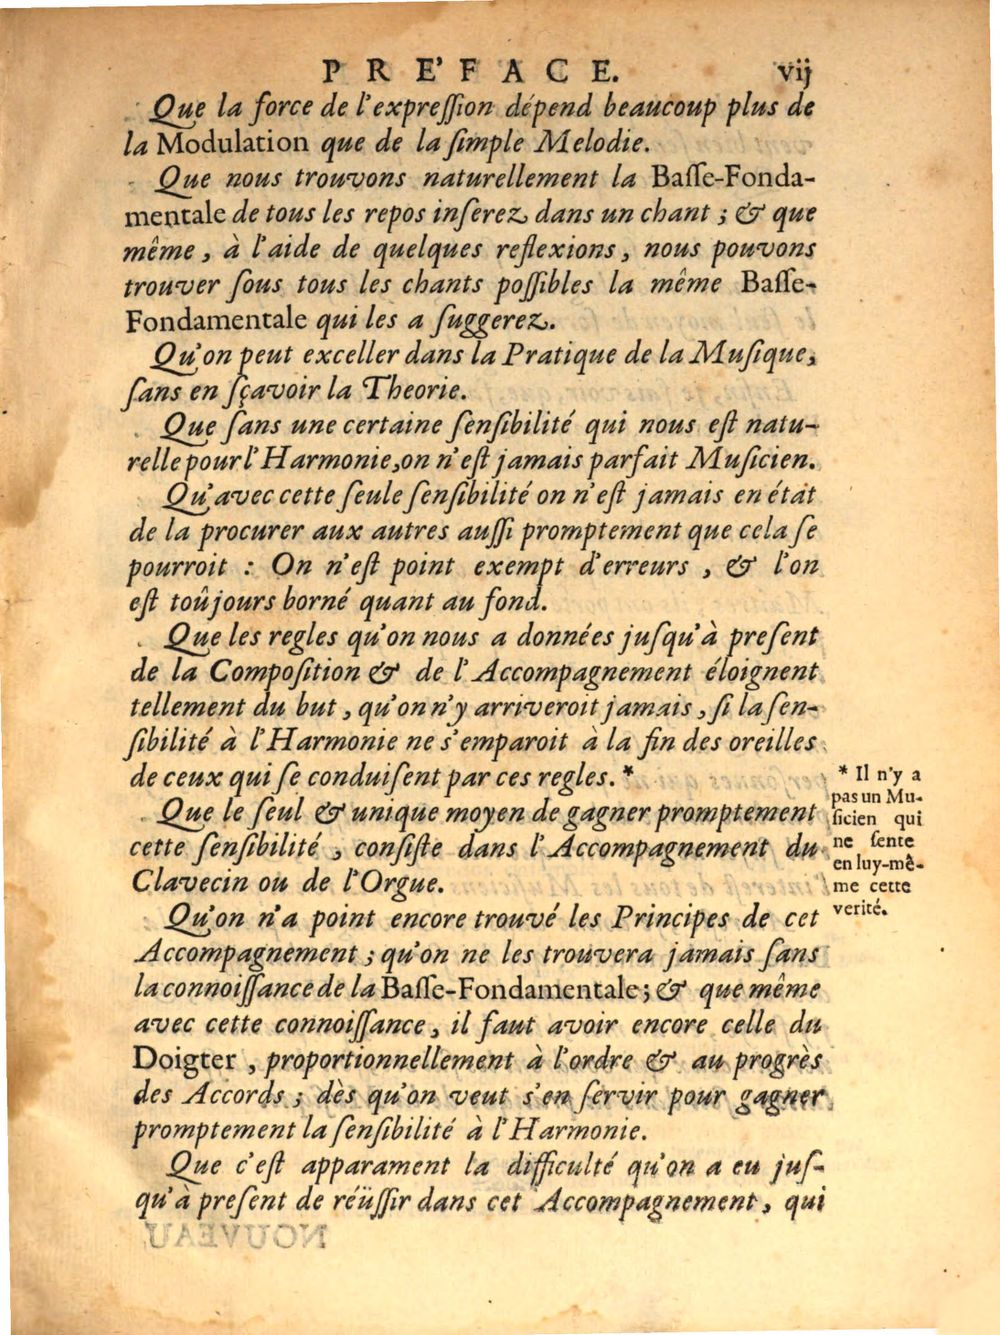 PRE'FACE. vij
Que la force de l'expreſſion dépend beaucoup plus de
la Modulation que de la ſimple Melodie.
Que nous trouvons naturellement la Baſſe-Fonda-
mentale de tous les repos inſerez dans un chant ; & que
même, à l'aide de quelques reflexions, nous pouvons
trouver ſous tous les chants poſſibles la même Baſſe-
Fondamentale qui les a ſuggerez.
Qu'on peut exceller dans la Pratique de la Muſique,
ſans en ſçavoir la Theorie.
Que ſans une certaine ſenſibilité qui nous eſt natu-
relle pour l'Harmonie, on n'eſt jamais parfait Muſicien.
Qu'avec cette ſeule ſenſibilité on n'eſt jamais en état
de la procurer aux autres auſſi promptement que cela ſe
pourroit : On n'eſt point exempt d'erreurs, & l'on
eſt toûjours borné quant au fond.
Que les regles qu'on nous a données juſqu'à preſent
de la Compoſition & de l'Accompagnement éloignent
tellement du but, qu'on n'y arriveroit jamais, ſi la ſen-
ſibilité à l'Harmonie ne s'emparoit à la fin des oreilles
de ceux qui ſe conduiſent par ces regles. *
* Il n'y a
pas un Mu-
ſicien qui
ne ſente
en luy-mê-
me cette
verité.
Que le ſeul & unique moyen de gagner promptement
cette ſenſibilité, conſiſte dans l'Accompagnement du
Clavecin ou de l'Orgue.
Qu'on n'a point encore trouvé les Principes de cet
Accompagnement ; qu'on ne les trouvera jamais ſans
la connoiſſance de la Baſſe-Fondamentale ; & que même
avec cette connoiſſance, il faut avoir encore celle du
Doigter, proportionnellement à l'ordre & au progrès
des Accords ; dès qu'on veut s'en ſervir pour gagner
promptement la ſenſibilité à l'Harmonie.
Que c'eſt apparament la difficulté qu'on a eu juſ-
qu'à preſent de réüſſir dans cet Accompagnement, qui